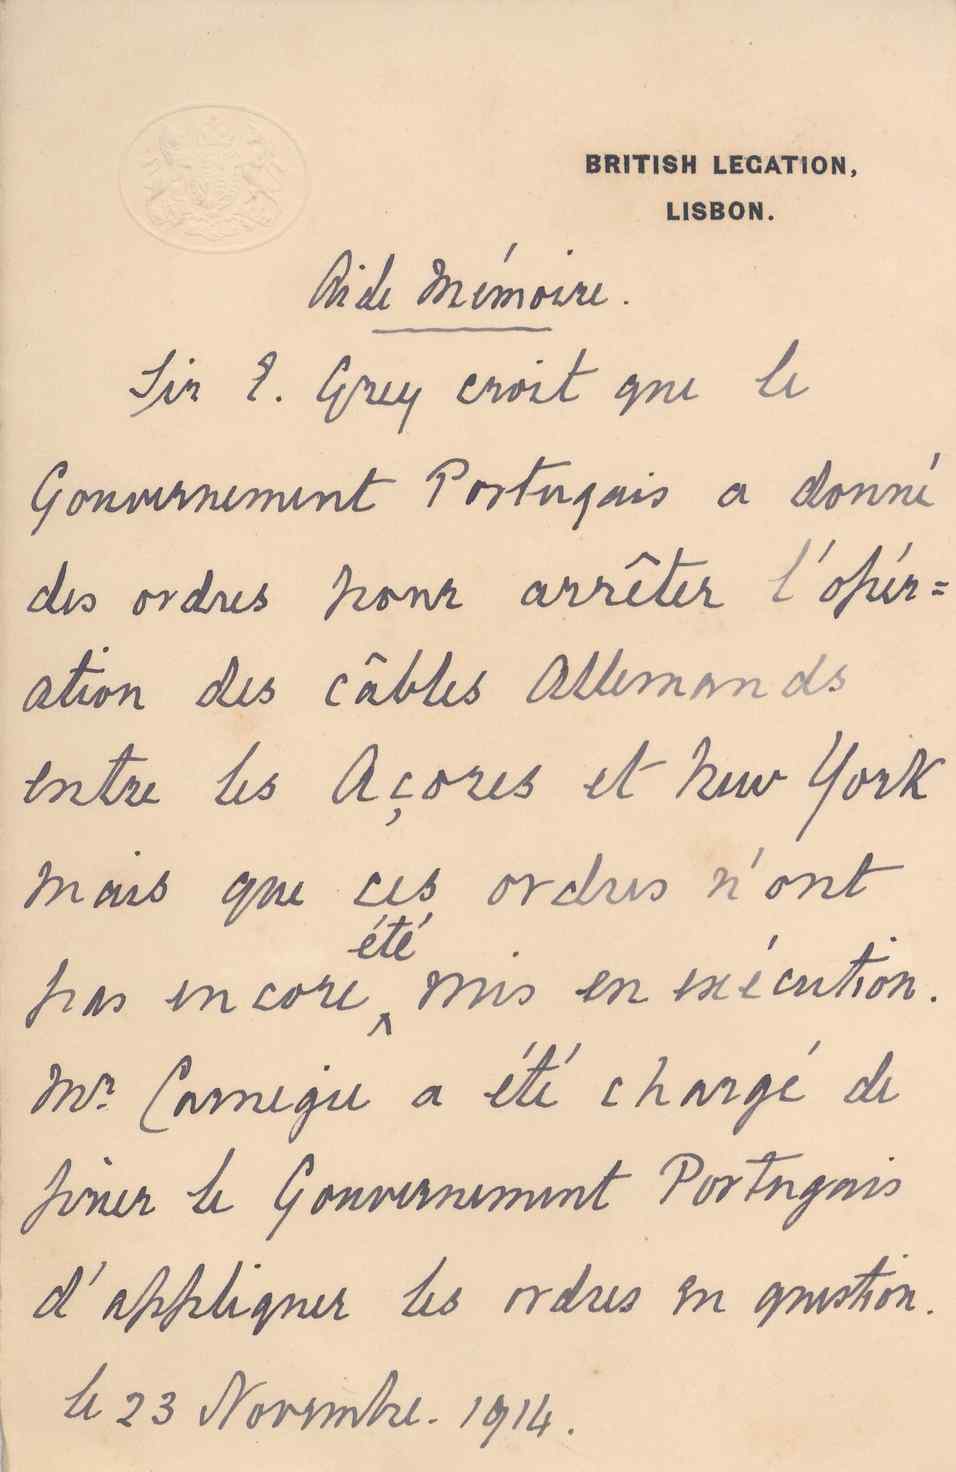 BRITISH LEGATION,
LISBON.
Aide Mémoire.
Sir E. Grey croit que le
Gouvernement Portugais a donné
des ordres pour arrêter l'opér=
ation des câbles Allemands
entre les Açores et New York
mais que ces ordres n'ont
été
pas encore ^ mis en exécution.
Mr. Carnegie a été chargé de
prier le Gouvernement Portugais
d'appliquer les ordres en question.
le 23 Novembre. 1914.